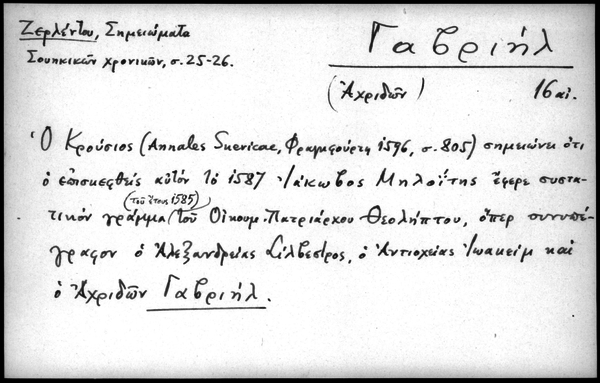 Ζερλέντου, Σημειώματα
Σουηκικῶν χρονικῶν, σ. 25-26.
Γαβριήλ
(Ἀχριδῶν)
16 αἰ.
Ὁ Κρούσιος (Annales Suevicae, Φραγκφούρτη 1596, σ. 805) σημειώνει ὅτι
ὁ ἐπισκεφθείς αὐτόν τό 1587 Ἰάκωβος Μηλοΐτης ἔφερε συστα-
τικόν γράμμα (τοῦ ἔτους 1585) τοῦ Οἰκουμ. Πατριάρχου Θεολήπτου, ὅπερ συνυπέ-
γραφον ὁ Ἀλεξανδρείας Σίλβεστρος, ὁ Ἀντιοχείας Ἰωακείμ καί
ὁ Ἀχριδῶν Γαβριήλ.